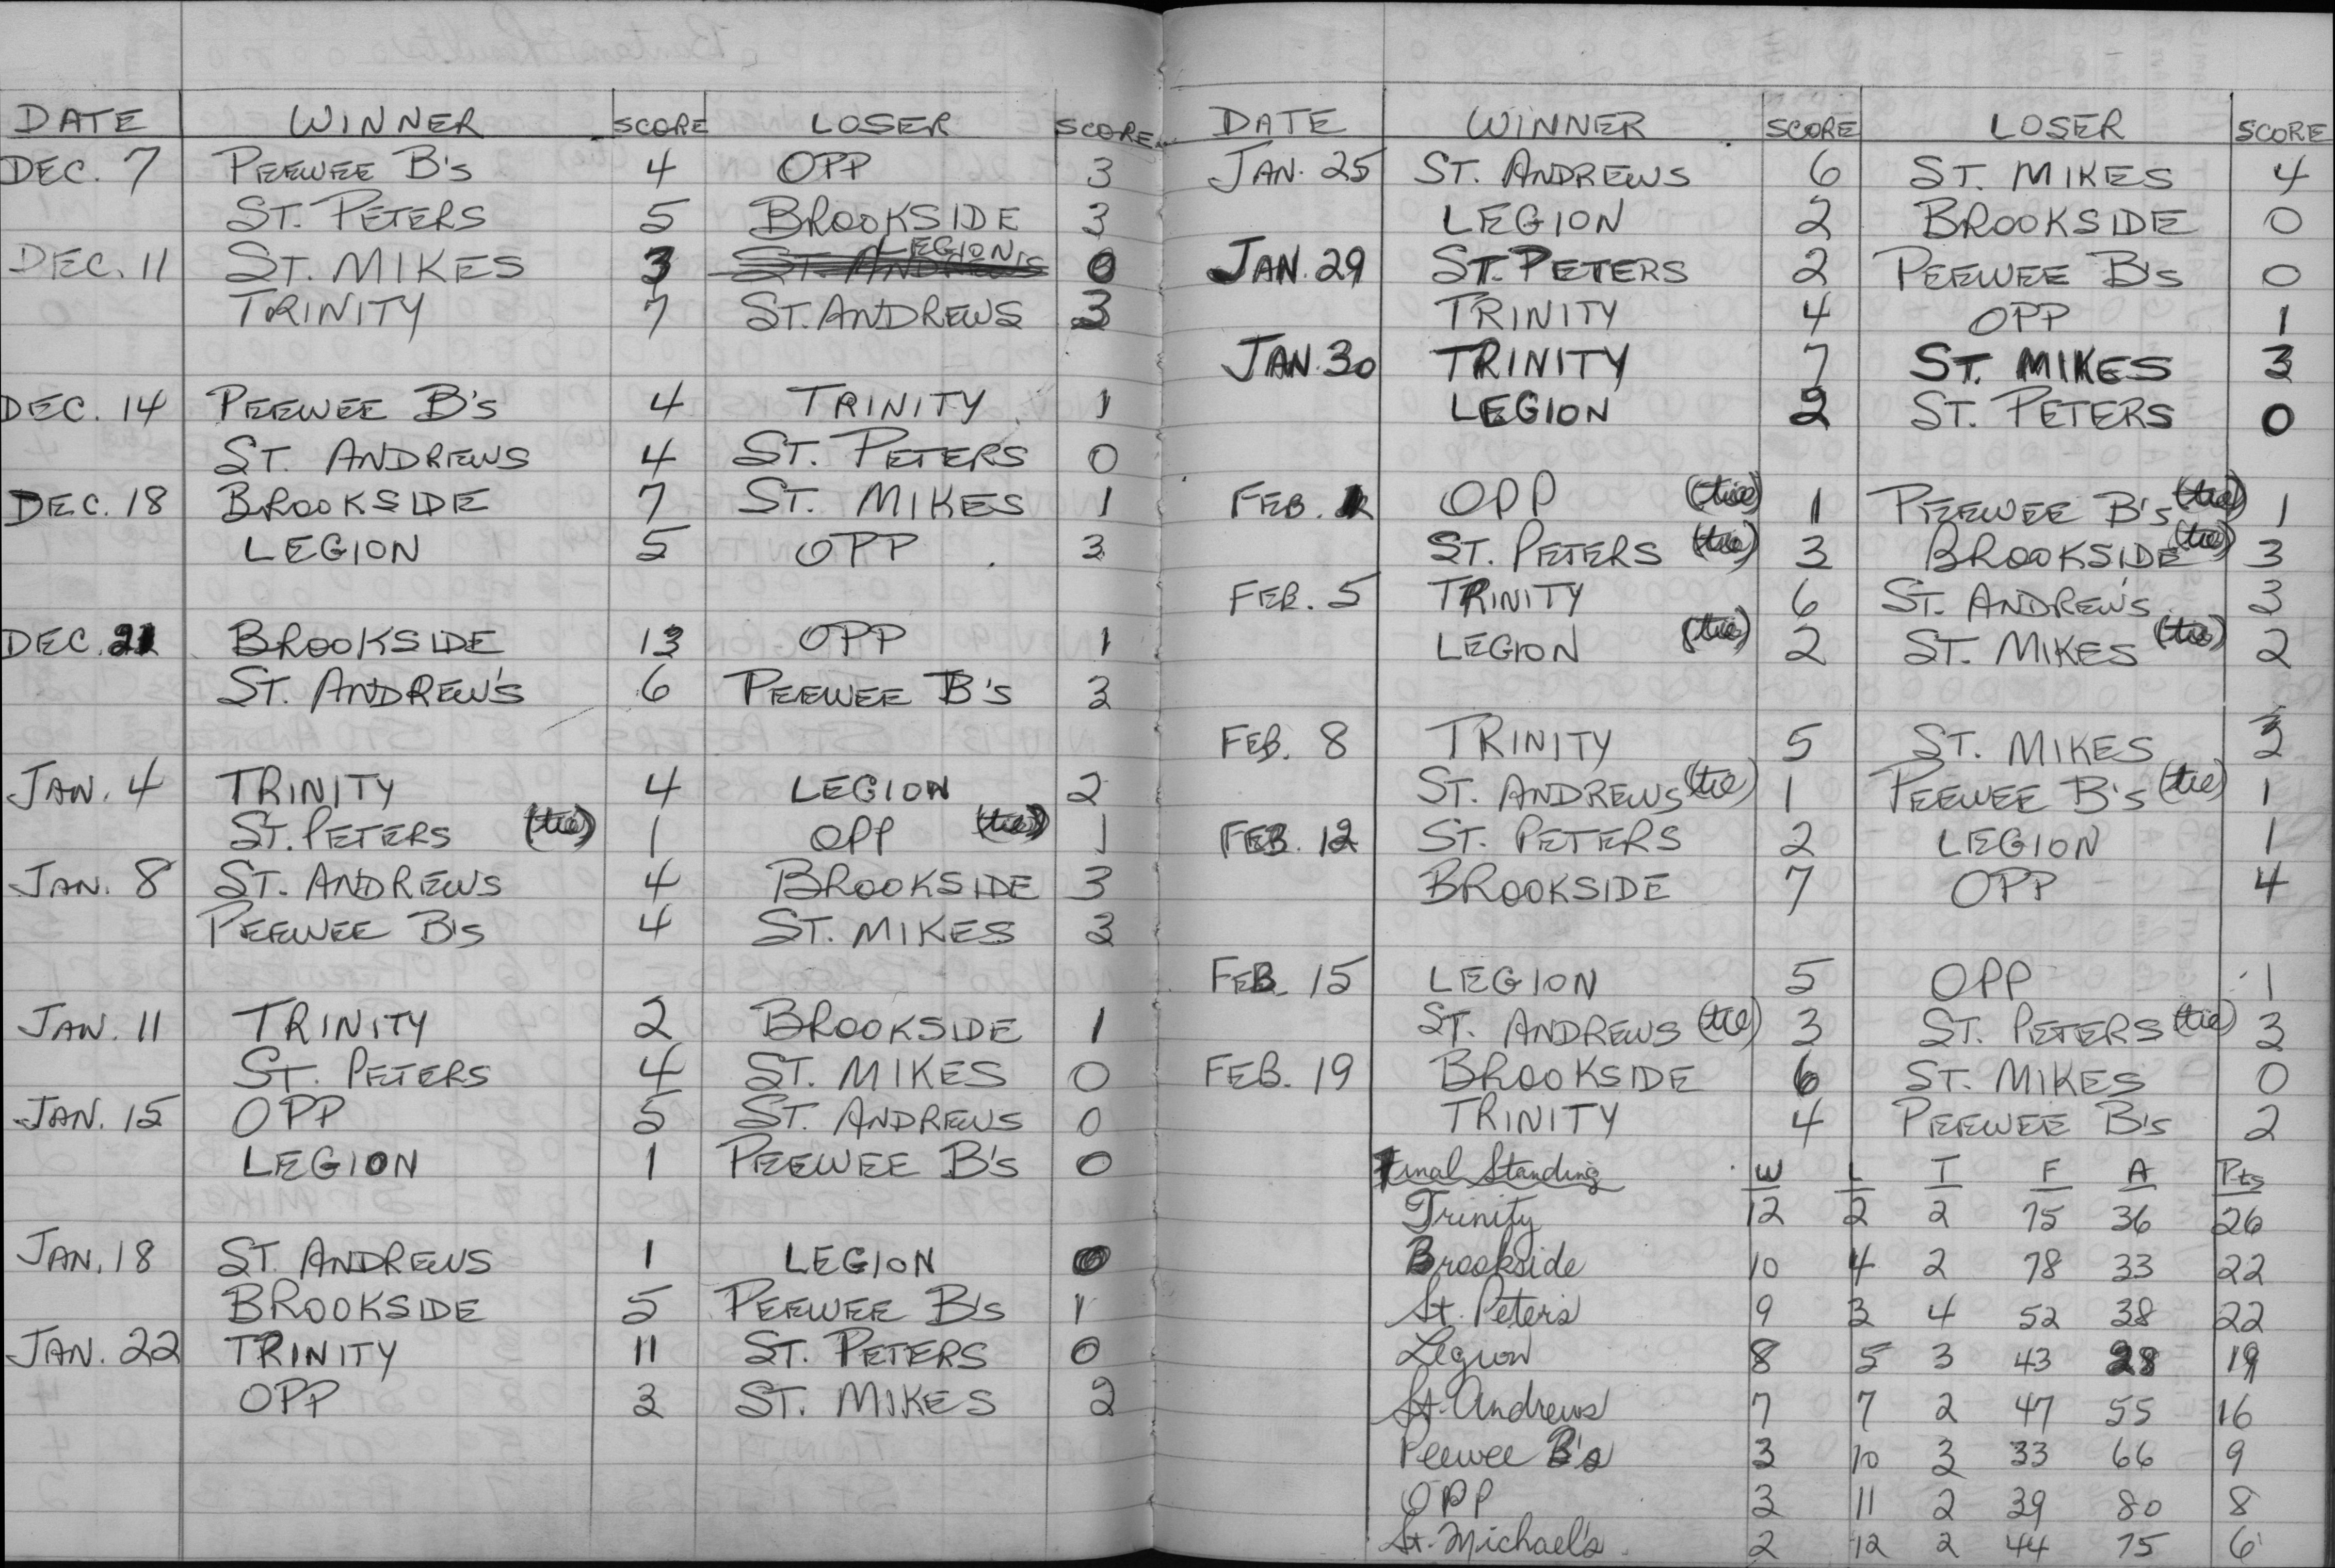 DATE WINNER SCORE LOSER SCORE
DEC. 7 PEEWEE B's 4 OPP 3
ST. PETERS 5 BROOKSIDE 3
DEC. 11 ST. MIKES 3 LEGION 0
TRINITY 7 ST. ANDREWS 3
DEC. 14 PEEWEE B's 4 TRINITY 1
ST. ANDREWS 4 ST. PETERS 0
DEC. 18 BROOKSIDE 7 ST. MIKES 1
LEGION 5 OPP 3
DEC. 21 BROOKSIDE 13 OPP 1
ST. ANDREW'S 6 PEEWEE B's 3
JAN. 4 TRINITY 4 LEGION 2
ST. PETERS (tie) 1 OPP (tie) 1
JAN. 8 ST. ANDREWS 4 BROOKSIDE 3
PEEWEE B's 4 ST. MIKES 3
JAN. 11 TRINITY 2 BROOKSIDE 1
ST. PETERS 4 ST. MIKES 0
JAN. 15 OPP 5 ST. ANDREWS 0
LEGION 1 PEEWEE B's 0
JAN. 18 ST. ANDREWS 1 LEGION 0
BROOKSIDE 5 PEEWEE B's 1
JAN. 22 TRINITY 11 ST. PETERS 0
OPP 3 ST. MIKES 2
DATE WINNER SCORE LOSER SCORE
JAN. 25 ST. ANDREWS 6 ST. MIKES 4
LEGION 2 BROOKSIDE 0
JAN. 29 ST. PETERS 2 PEEWEE B's 0
TRINITY 4 OPP 1
JAN. 30 TRINITY 7 ST. MIKES 3
LEGION 2 ST. PETERS 0
FEB. OPP (tie) 1 PEEWEE B's (tie) 1
ST. PETERS (tie) 3 BROOKSIDE (tie) 3
FEB. 5 TRINITY 6 ST. ANDREW'S 3
LEGION (tie) 2 ST. MIKES (tie) 2
FEB. 8 TRINITY 5 ST. MIKES 3
ST. ANDREWS (tie) 1 PEEWEE B's (tie) 1
FEB. 12 ST. PETERS 2 LEGION 1
BROOKSIDE 7 OPP 4
FEB. 15 LEGION 5 OPP 1
ST. ANDREWS (tie) 3 ST. PETERS (tie) 3
FEB. 19 BROOKSIDE 6 ST. MIKES 0
TRINITY 4 PEEWEE B's 2
Final Standing W L T F A Pts
Trinity 12 2 2 75 36 26
Brookside 10 4 2 78 33 22
St. Peter's 9 3 4 52 38 22
Legion 8 5 3 43 28 19
St. Andrews 7 7 2 47 55 16
Peewee B's 3 10 3 33 66 9
OPP 3 11 2 39 80 8
St. Michael's 2 12 2 44 75 6